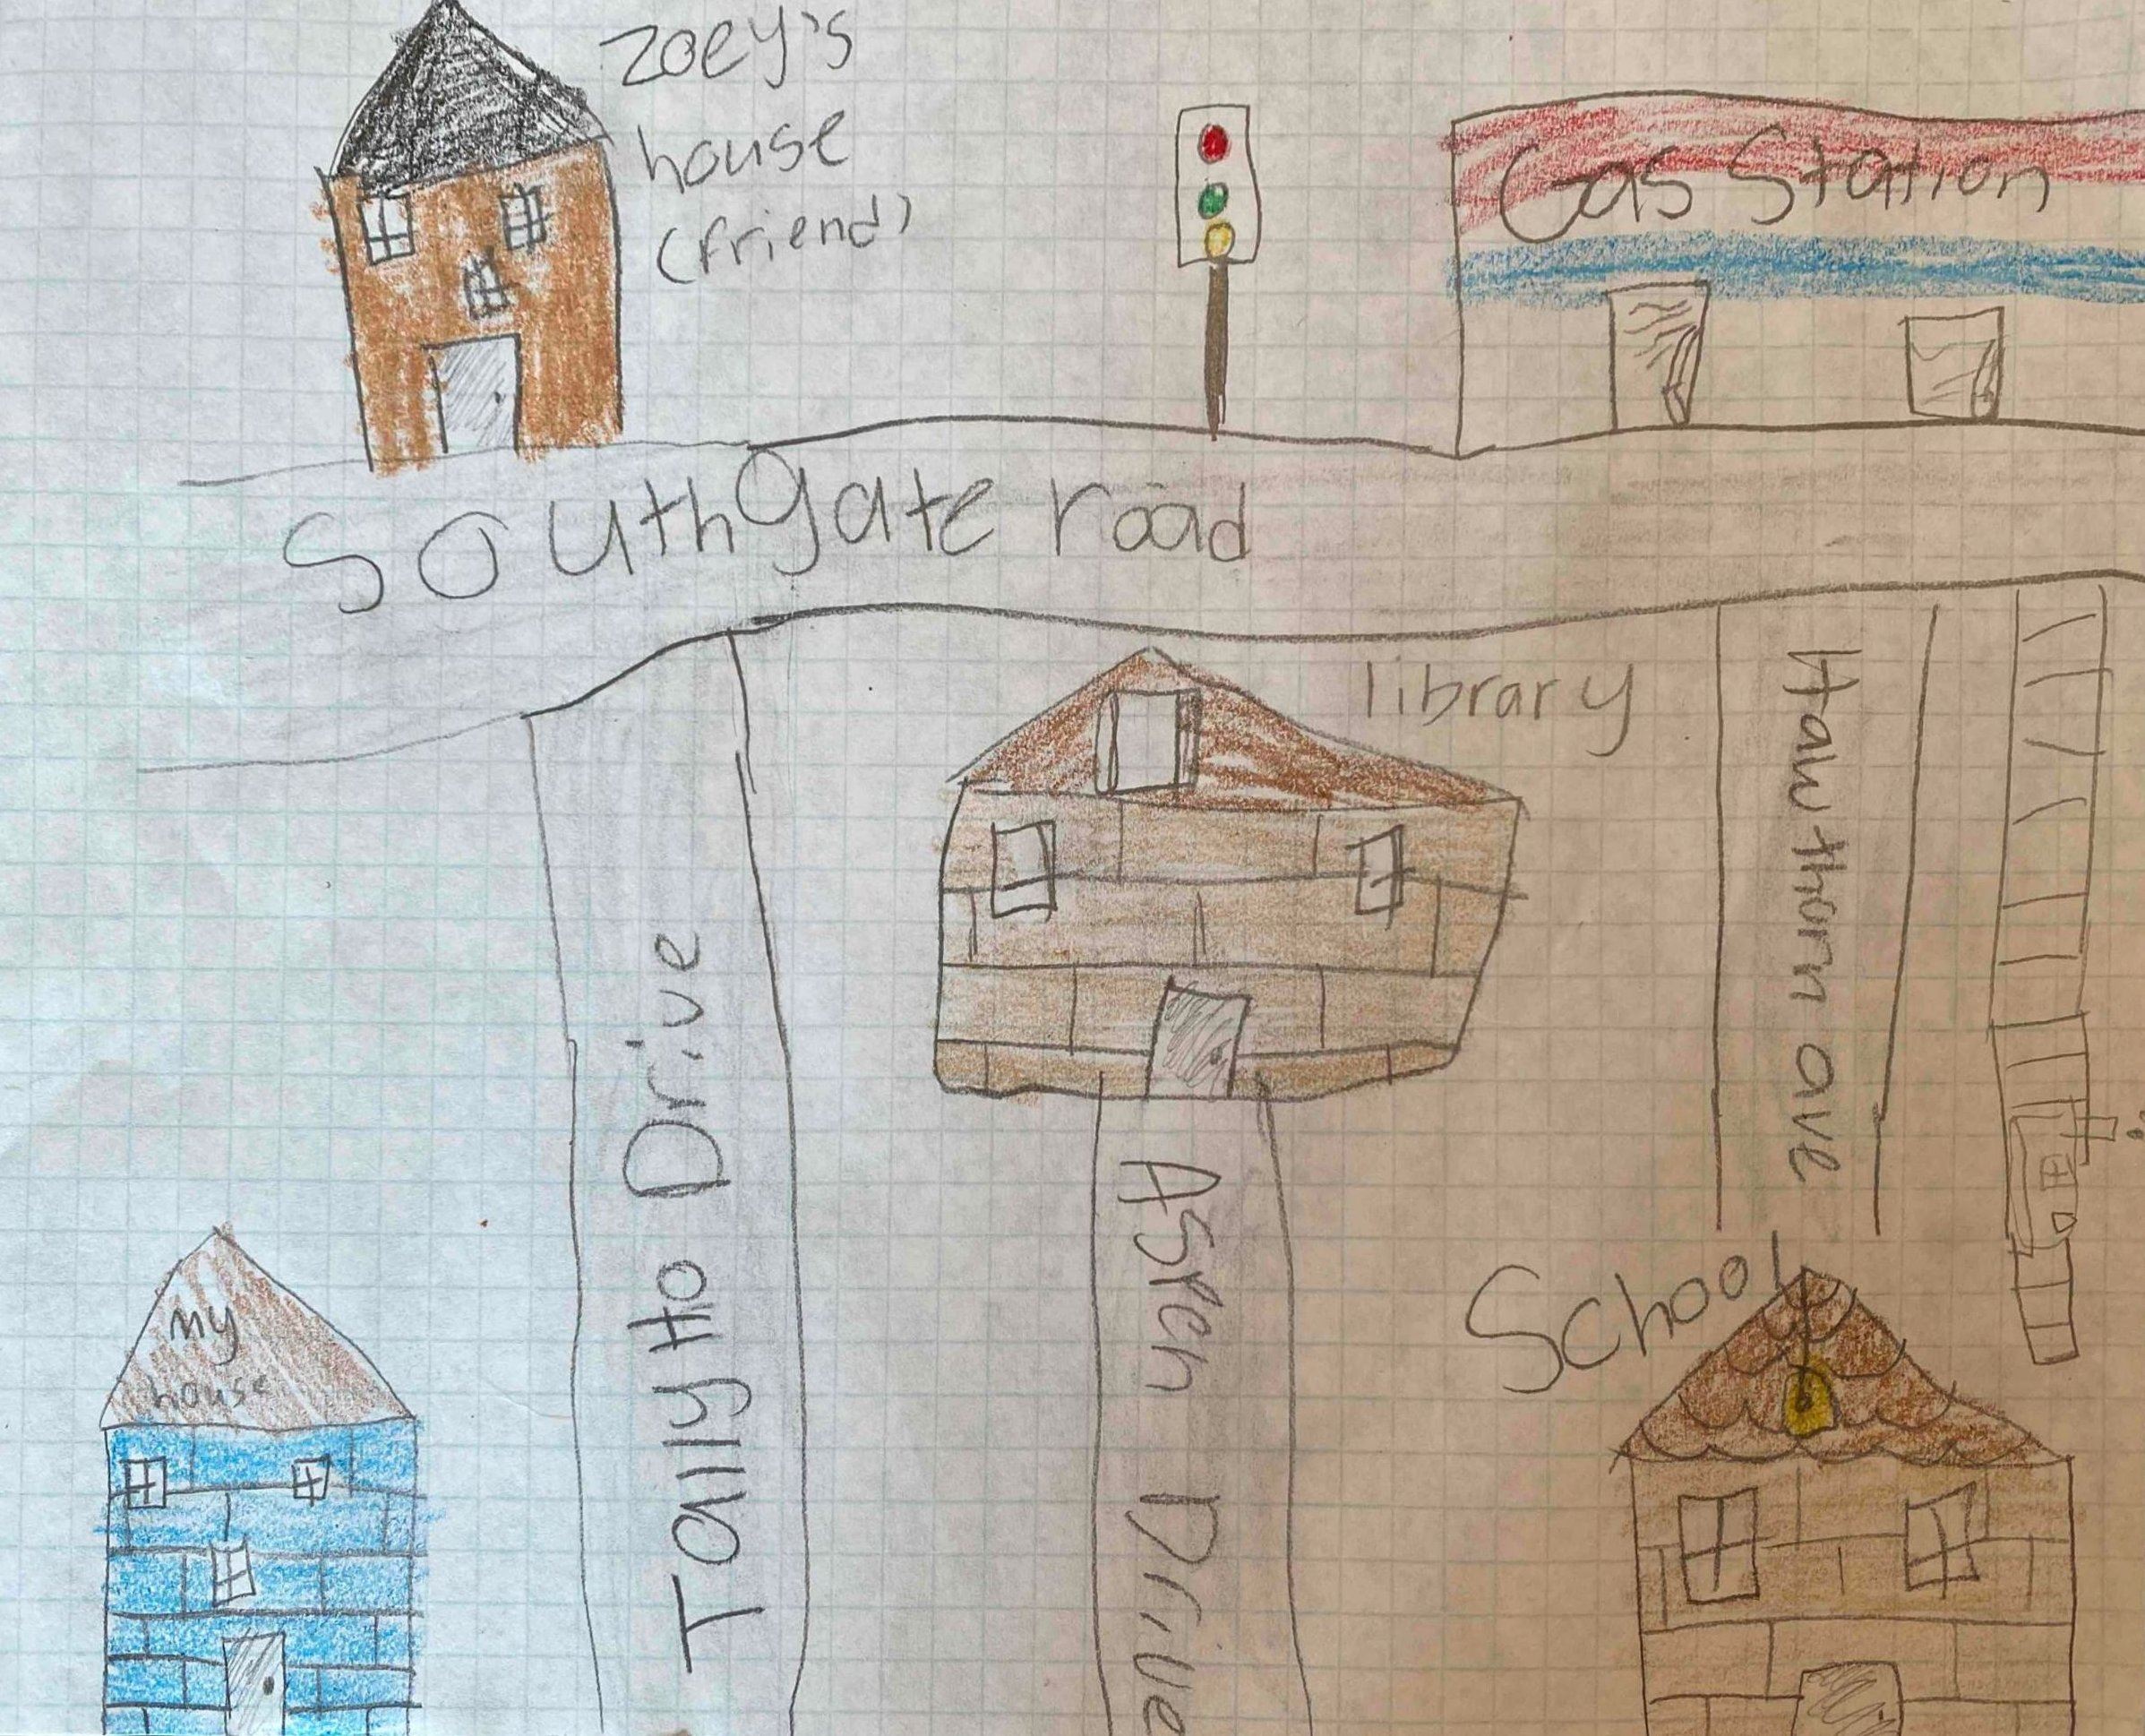 Zoey's
house
(friend)
Gas Station
Southgate road
library
Hawthorn ave
Tally Ho Drive
Aspen Drive
School
my
house